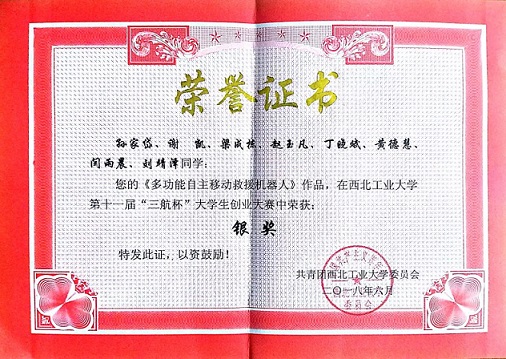 荣誉证书
孙家岱、谢 凯、梁成栋、赵玉凡、丁晓斌、黄德慧、
闫雨晨、刘靖泽同学：
您的《多功能自主移动救援机器人》作品，在西北工业大学
第十一届“三航杯”大学生创业大赛中荣获：
银 奖
特发此证，以资鼓励！
共青团西北工业大学委员会
二〇一八年六月